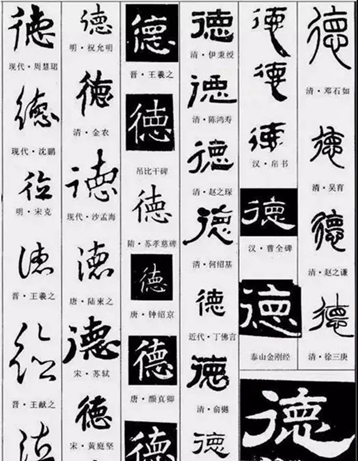 德
现代·周慧珺
德
现代·沈鹏
德
明·宋克
德
晋·王羲之
德
晋·王献之
德
德
明·祝允明
德
清·金农
德
现代·沙孟海
德
唐·陆柬之
德
宋·苏轼
德
宋·黄庭坚
德
晋·王羲之
德
吊比干碑
德
隋·苏孝慈碑
德
唐·钟绍京
德
唐·颜真卿
德
德
清·伊秉绶
德
清·陈鸿寿
德
清·赵之琛
德
清·何绍基
德
近代·丁佛言
德
清·俞樾
德
德
德
德
汉·帛书
德
汉·曹全碑
德
泰山金刚经
德
清·邓石如
德
清·吴育
德
清·赵之谦
德
清·徐三庚
德